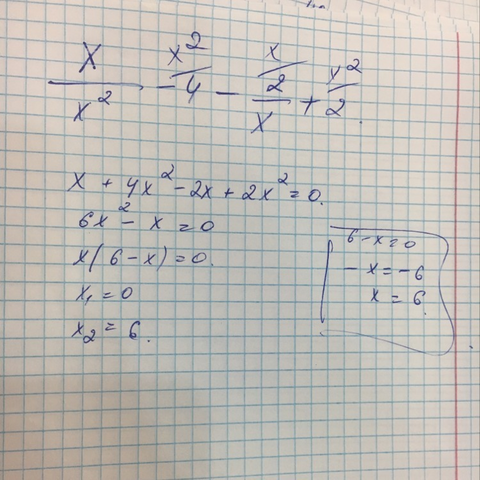 x/x² x²/-4 - x/(2/x) + x²/2
x + 4x² - 2x + 2x² = 0.
6x² - x = 0
x(6-x) = 0.
x₁ = 0
x₂ = 6.
6-x=0
-x = -6
x = 6.